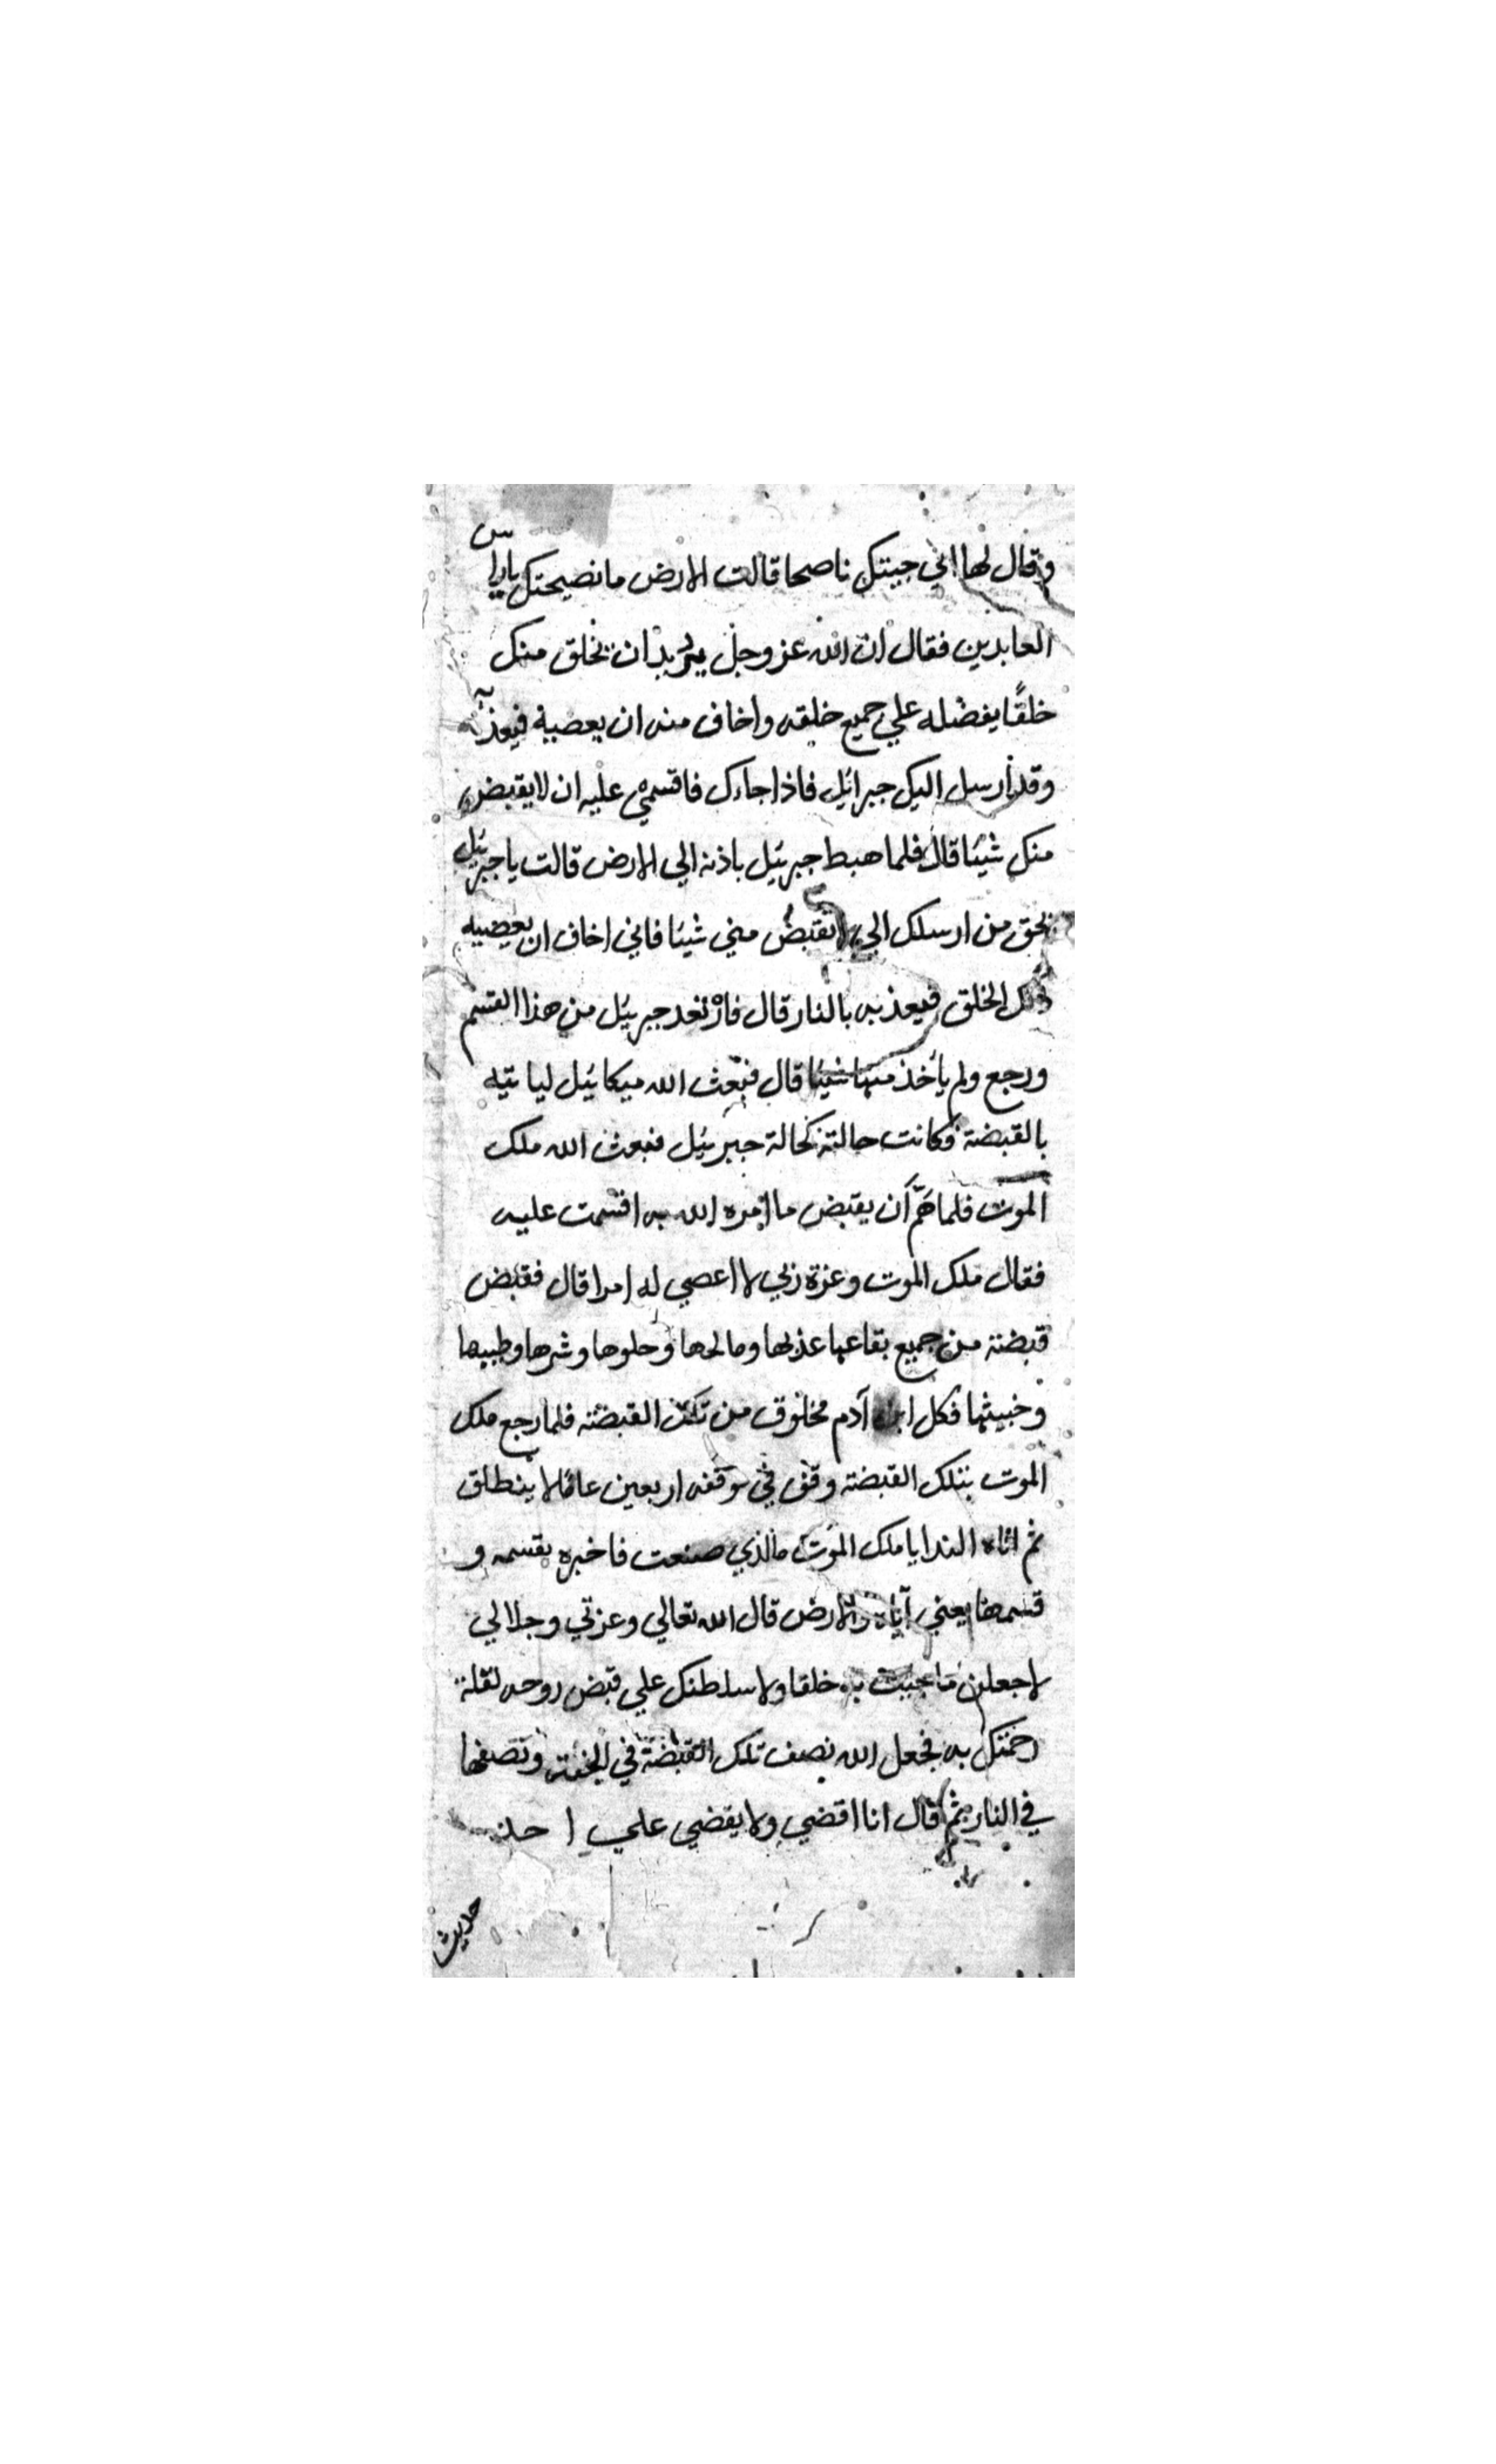 وقال لها اني جيتك ناصحا قالت الارض ما نصيحتك يا راس
العابدين فقال ان الله عز وجل يريد ان يخلق منك
خلقًا يفضله علي جميع خلقه واخاف منه ان يعصيه فيعذبه
وقد أرسل اليك جبرائيل فاذا جاءك فاقسمي عليه ان لا يقبض
منك شيئا قال فلما هبط جبرئيل باذنه الي الارض قالت يا جبرئيل
بحق من ارسلك الي لا تقبض مني شيئا فاني اخاف ان يعصيه
ذلك الخلق فيعذبه بالنار قال فارتعد جبرئيل من هذا القسم
ورجع ولم يأخذ منها شيئا قال فبعث الله ميكائيل لياتيه
بالقبضة فكانت حالته كحالة جبرئيل فبعث الله ملك
الموت فلما همّ أن يقبض ما امره الله به اقسمت عليه
فقال ملك الموت وعزة ربي لا اعصي له امرا قال فقبض
قبضة من جميع بقاعها عذبها ومالحها وحلوها وشرها وطيبها
وخبيثها فكل ابن آدم مخلوق من تلك القبضة فلما رجع ملك
الموت بتلك القبضة وقف في موقفه اربعين عامًا لا ينطلق
ثم اتاه الندا يا ملك الموت ما الذي صنعت فاخبره بقسمه و
قسمها يعني آياه والارض قال الله تعالي وعزتي وجلالي
لاجعلن ما جيت به خلقا ولاسلطنك علي قبض روحه لقلة
رحمتك به فجعل الله نصف تلك القبضة في الجنة ونصفها
في النار ثم قال انا اقضي ولا يقضي علي احد
حديث